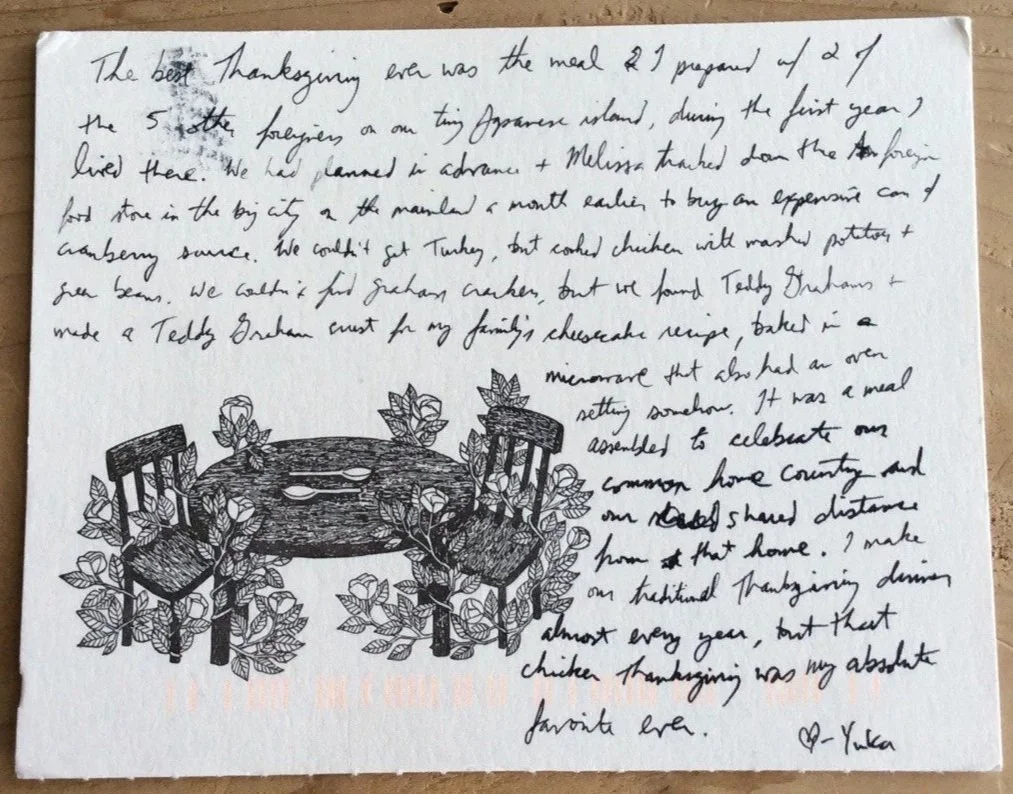 The best Thanksgiving ever was the meal I prepared w/ 2 of
the 5 other foreigners on our tiny Japanese island, during the first year I
lived there. We had planned in advance + Melissa tracked down the foreign
food store in the big city on the mainland a month earlier to buy an expensive can of
cranberry saurce. We couldn't get Turkey, but cooked chicken with mashed potatoes +
green beans. We couldn't find graham crackers, but we found Teddy Grahams +
made a Teddy Graham crust for my family's cheesecake recipe, baked in a
microwave that also had an oven
setting somehow. It was a meal
assembled to celebrate our
common home country and
our shared distance
from that home. I make
our traditional Thanksgiving dinner
almost every year, but that
chicken Thanksgiving was my absolute
favorite ever.
♡- Yuka